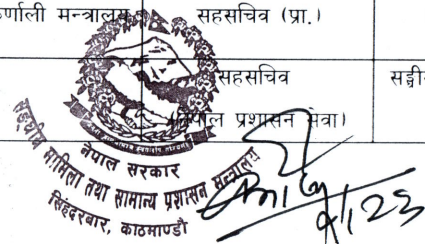 र्णाली मन्त्रालय सहसचिव (प्रा.)
सहसचिव
(नेपाल प्रशासन सेवा)
नेपाल सरकार
सङ्घीय मामिला तथा सामान्य प्रशासन मन्त्रालय
सिंहदरबार, काठमाण्डौ